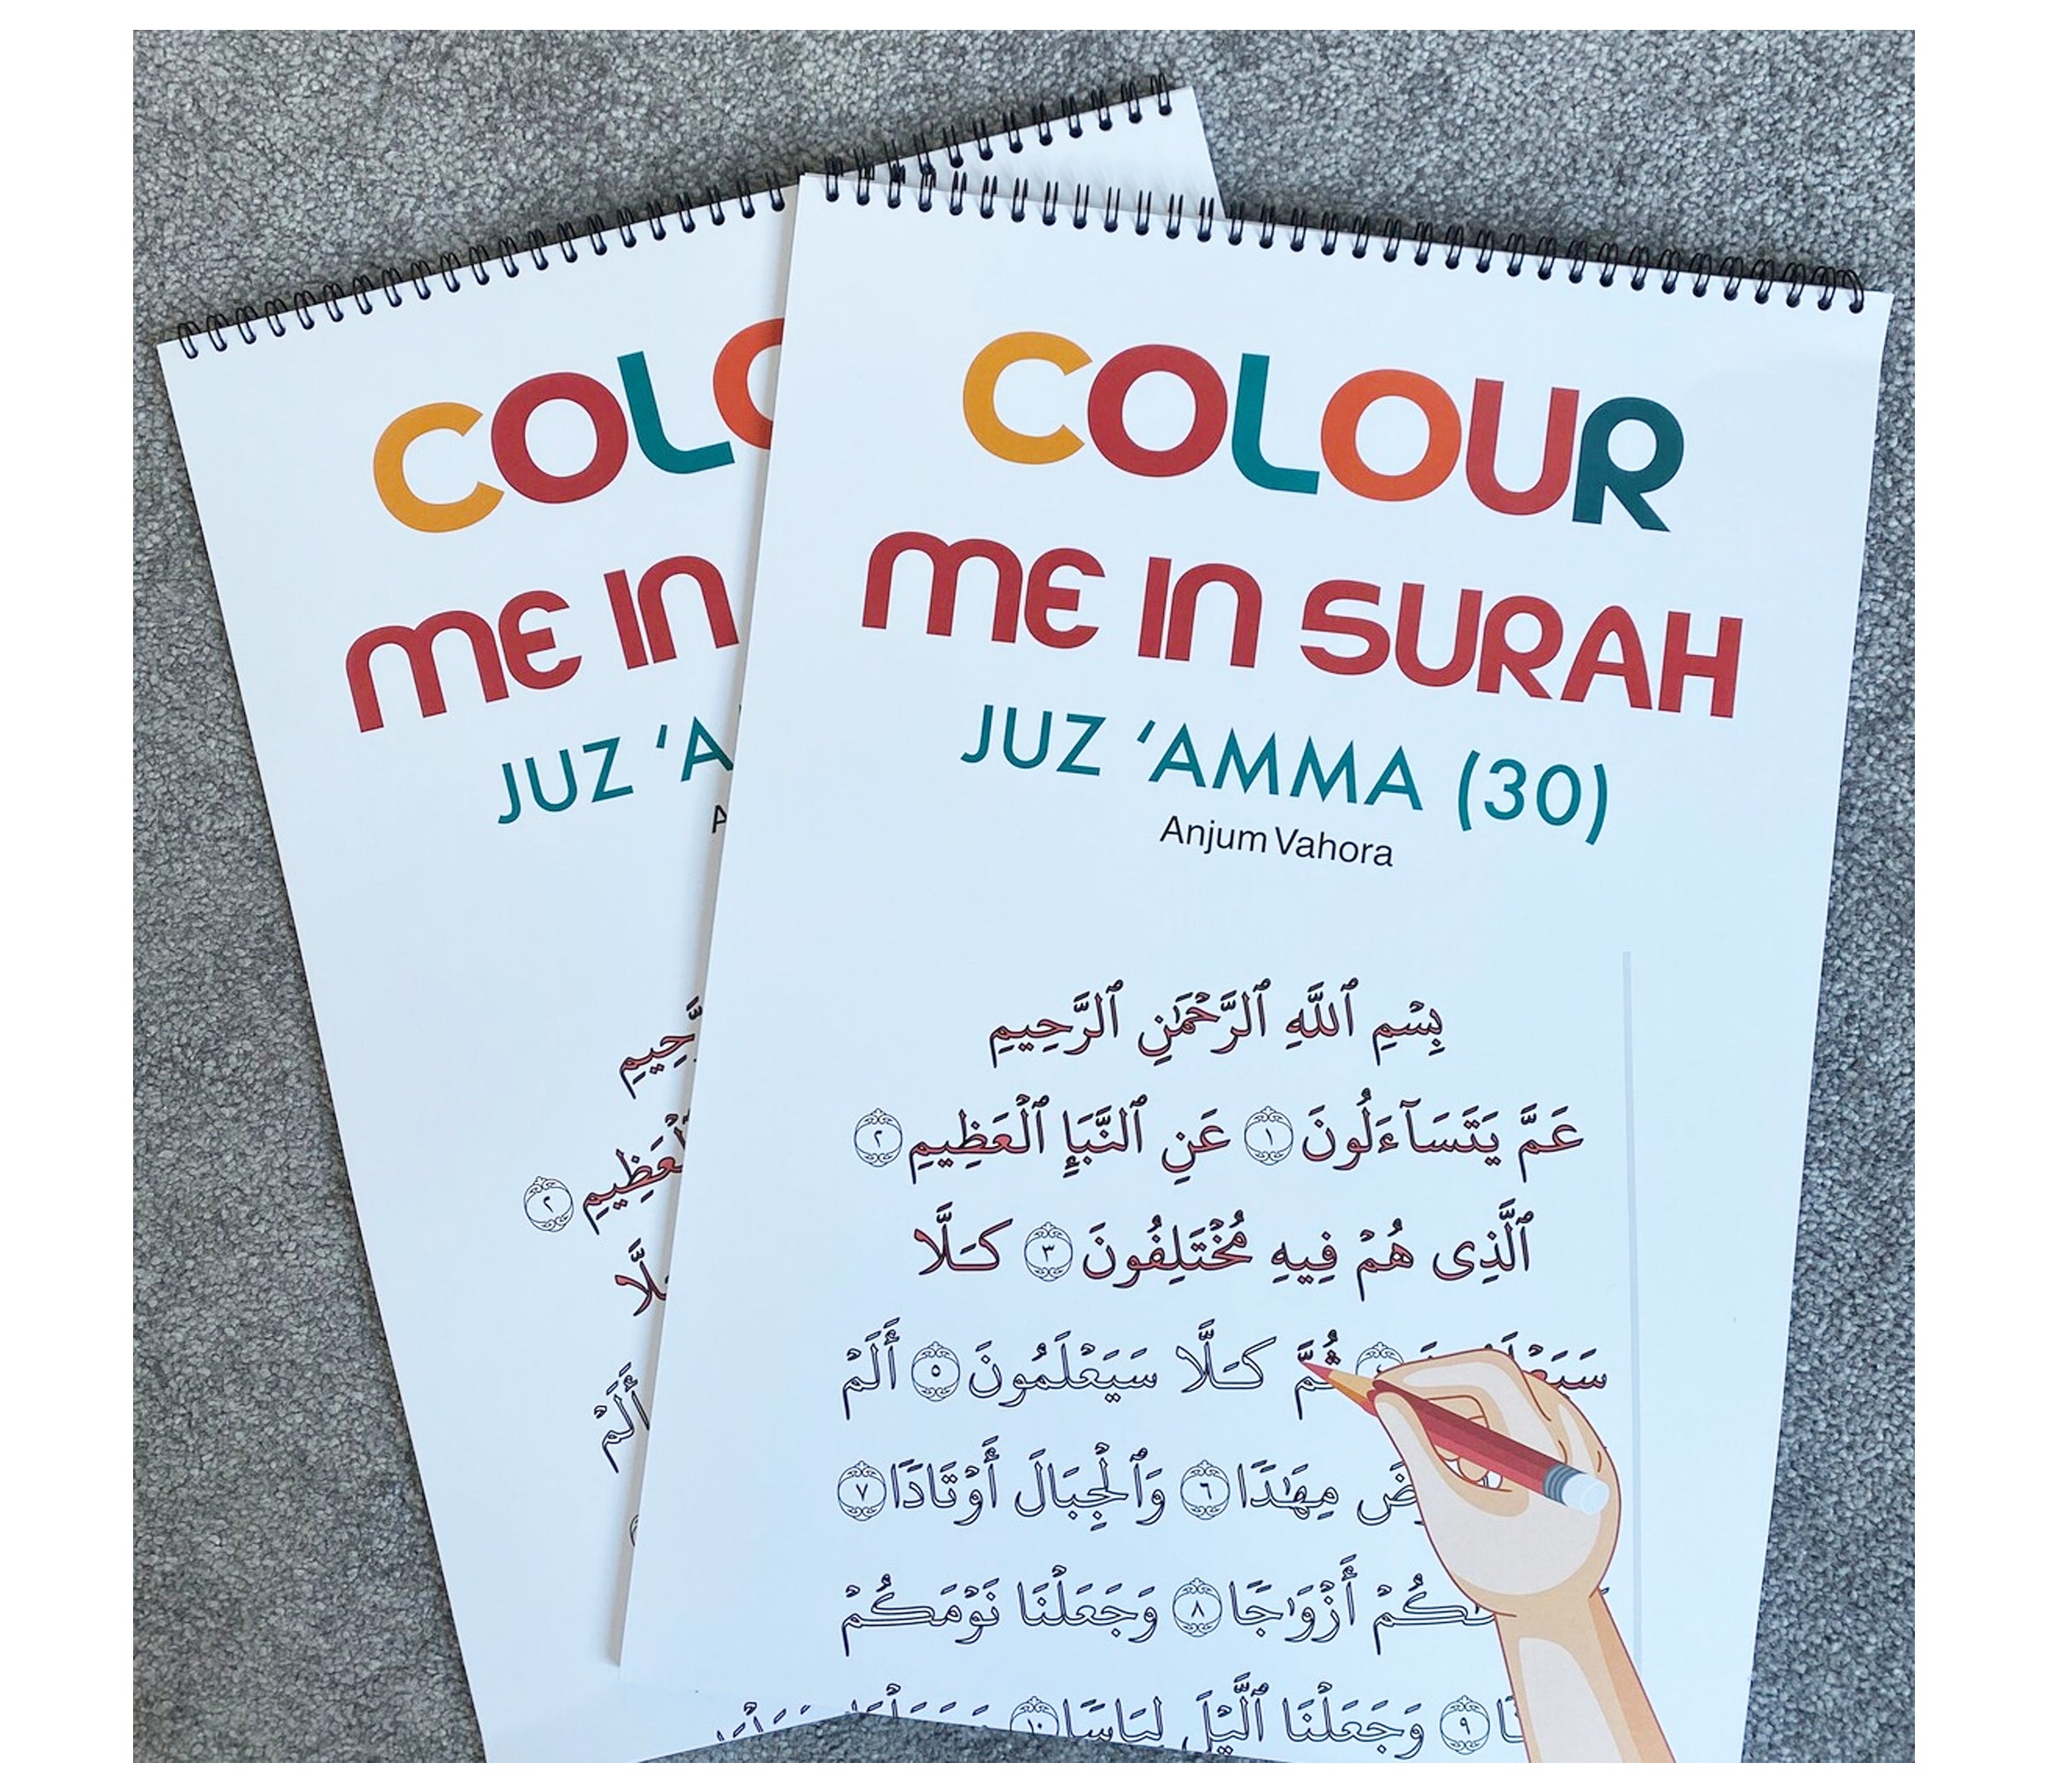 COLO
ME IN
JUZ ‘A
COLOUR
ME IN SURAH
JUZ ‘AMMA (30)
Anjum Vahora
بِسْمِ ٱللَّهِ ٱلرَّحْمَٰنِ ٱلرَّحِيمِ
عَمَّ يَتَسَآءَلُونَ ١ عَنِ ٱلنَّبَإِ ٱلْعَظِيمِ ٢
ٱلَّذِى هُمْ فِيهِ مُخْتَلِفُونَ ٣ كَلَّا
ثُمَّ كَلَّا سَيَعْلَمُونَ ٥ أَلَمْ
مِهَٰدًا ٦ وَٱلْجِبَالَ أَوْتَادًا ٧
أَزْوَٰجًا ٨ وَجَعَلْنَا نَوْمَكُمْ
٩ وَجَعَلْنَا ٱلَّيْلَ لِبَاسًا ١٠